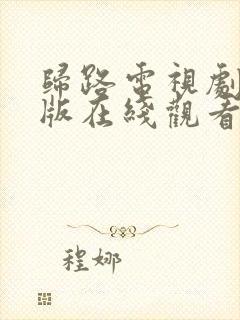 歸路電視劇
版在綫觀看
程娜